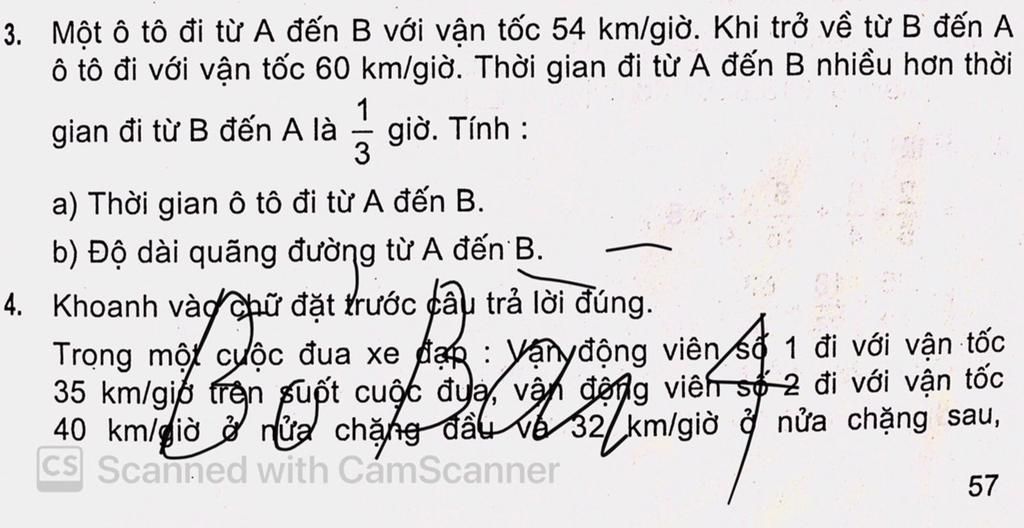 3. Một ô tô đi từ A đến B với vận tốc 54 km/giờ. Khi trở về từ B đến A
ô tô đi với vận tốc 60 km/giờ. Thời gian đi từ A đến B nhiều hơn thời
gian đi từ B đến A là 1/3 giờ. Tính :
a) Thời gian ô tô đi từ A đến B.
b) Độ dài quãng đường từ A đến B.
4. Khoanh vào chữ đặt trước câu trả lời đúng.
Trong một cuộc đua xe đạp : Vận động viên số 1 đi với vận tốc
35 km/giờ trên suốt cuộc đua, vận động viên số 2 đi với vận tốc
40 km/giờ ở nửa chặng đầu và 32 km/giờ ở nửa chặng sau,
Bỏ Bài 4
CS Scanned with CamScanner
57